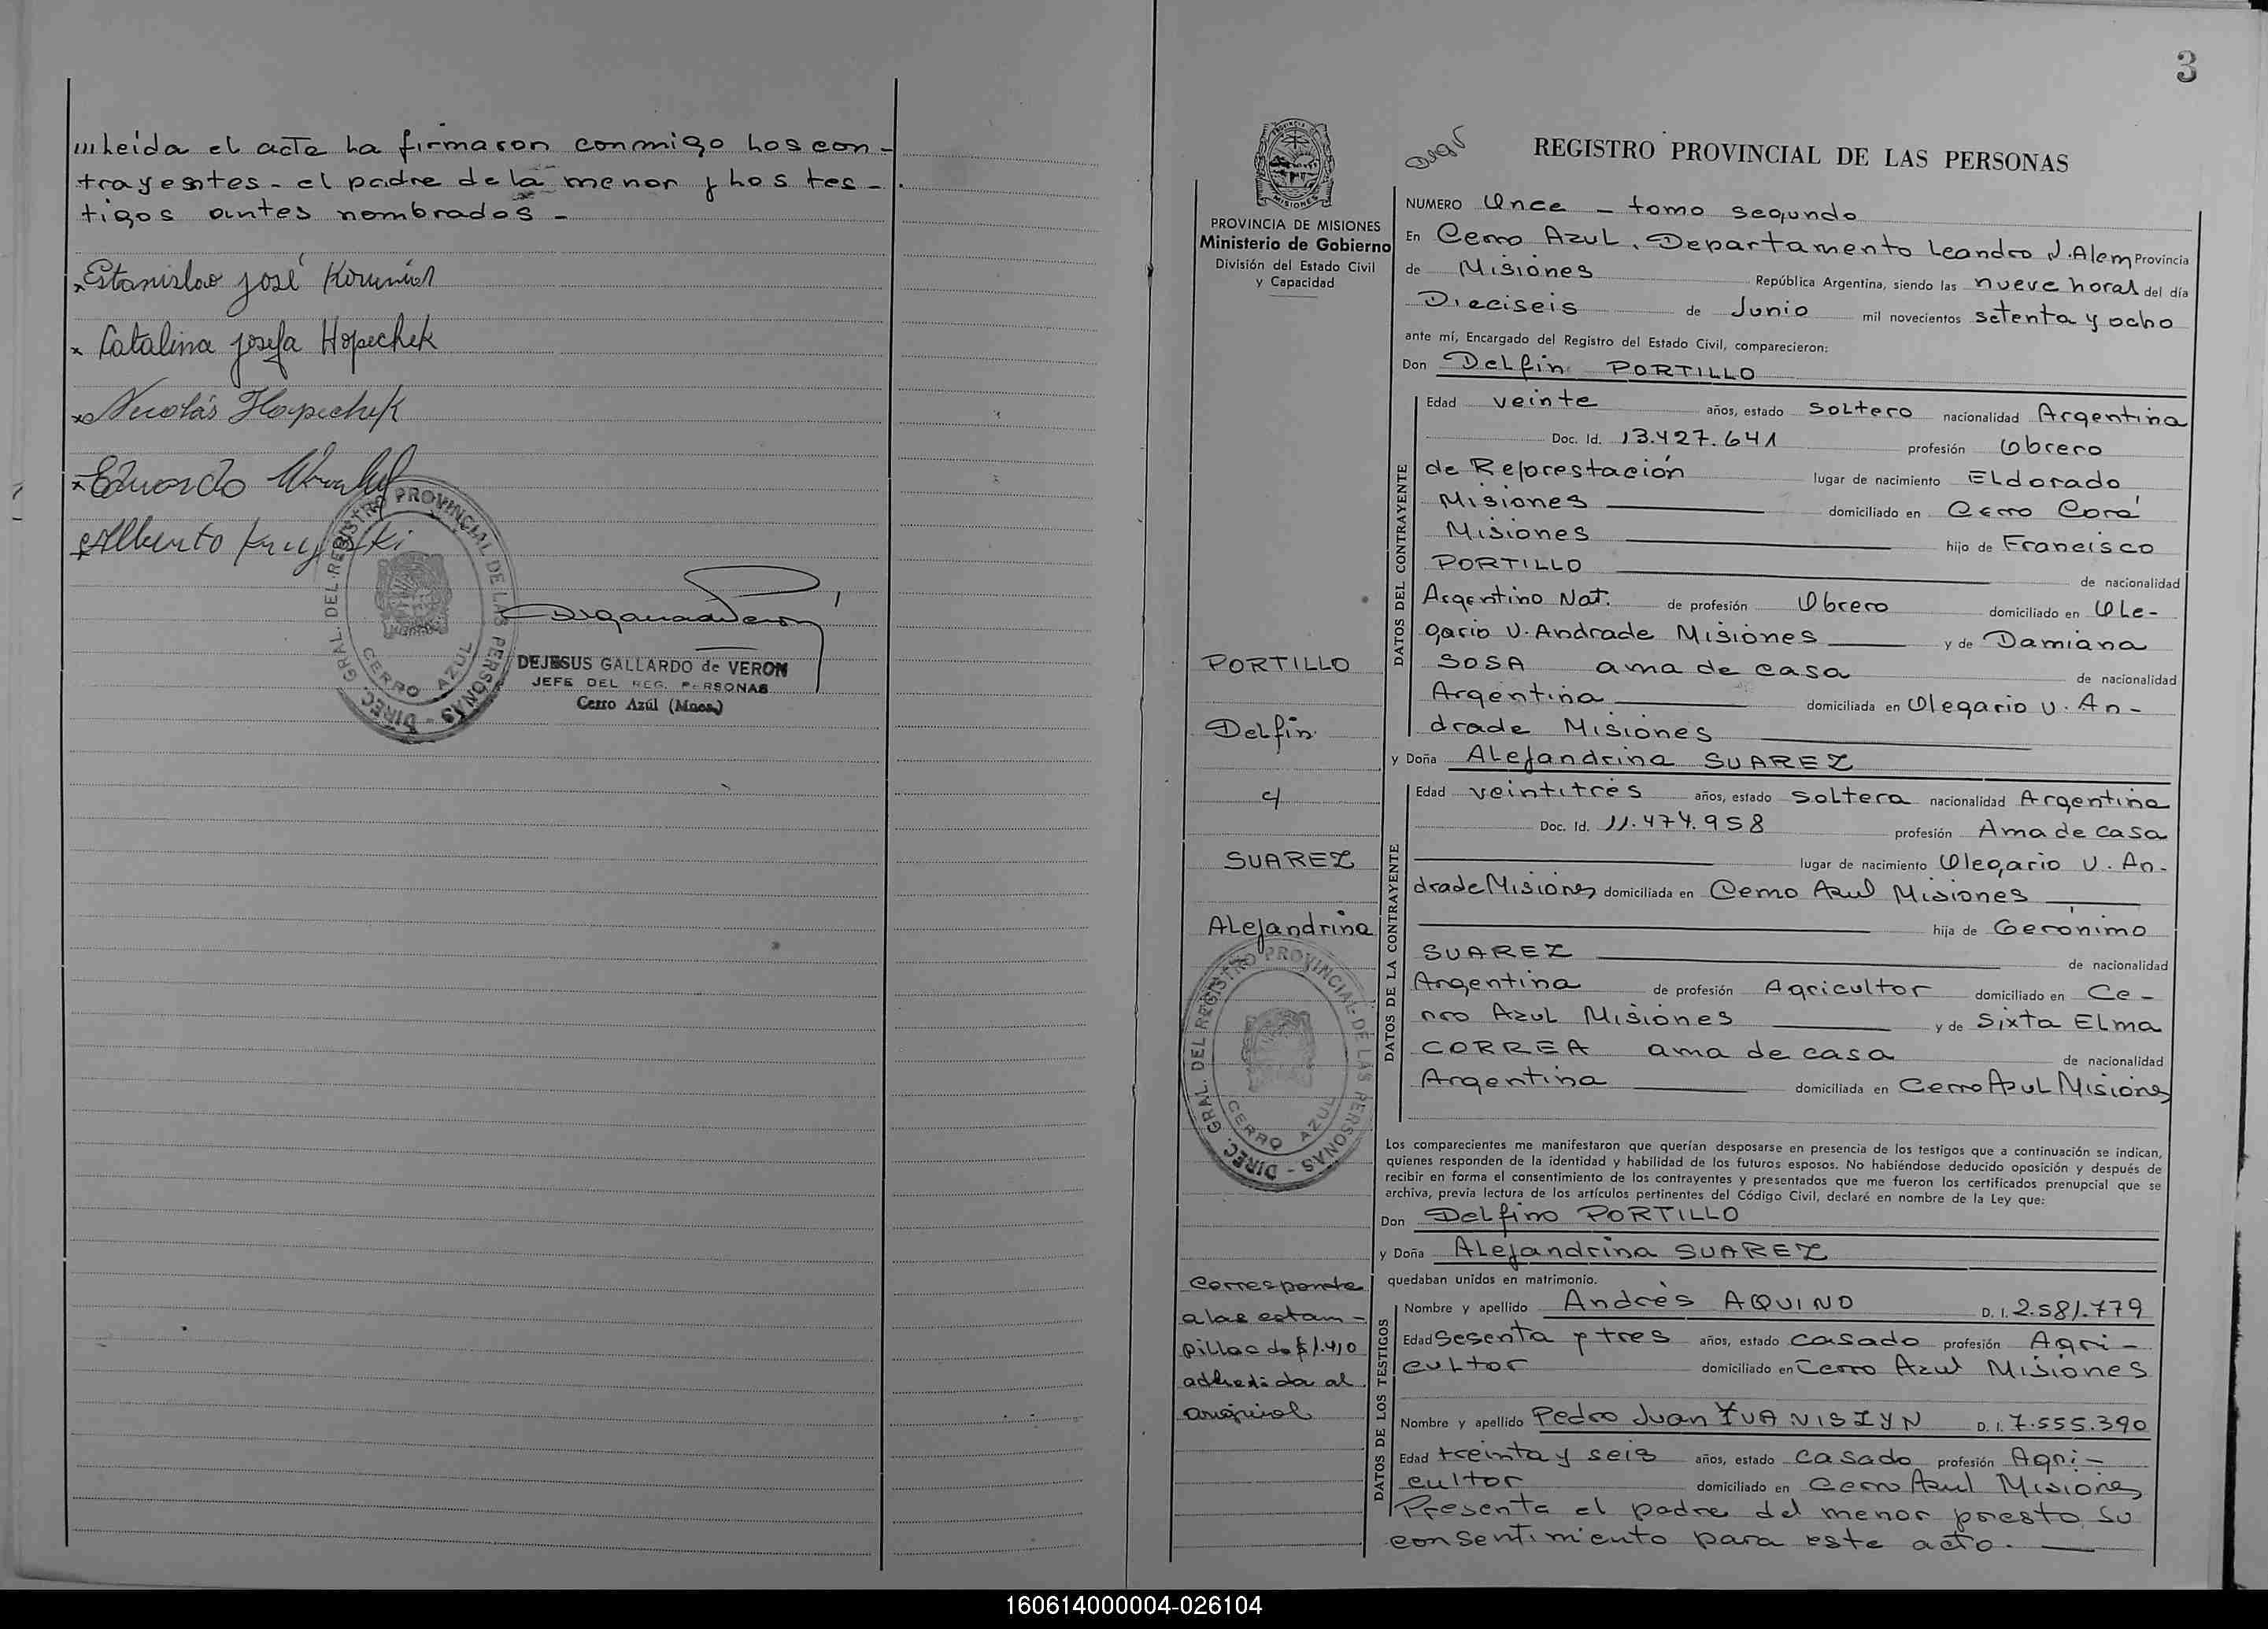 ///Leída el acta la firmaron conmigo los con-
trayentes - el padre de la menor y los tes-
tigos antes nombrados -
x Estanislao José
x Catalina Josefa Hopechek
x Nicolás Hopechek
x Eduardo
x Alberto
DIREC. GRAL. DEL REGISTRO PROVINCIAL DE LAS PERSONAS -
CERRO AZUL
DEJESUS GALLARDO de VERON
JEFE DEL REG. PERSONAS
Cerro Azúl (Mnes.)
3
PROVINCIA DE MISIONES
Ministerio de Gobierno
División del Estado Civil
y Capacidad
PORTILLO
Delfin
c/
SUAREZ
Alejandrina
DIREC. GRAL. DEL REGISTRO PROVINCIAL DE LAS PERSONAS -
CERRO AZUL
Corresponde
a las estam-
pillas de $ 1.410
adherida al
original
REGISTRO PROVINCIAL DE LAS PERSONAS
NUMERO Once - tomo segundo
En Cerro Azul, Departamento Leandro N. Alem Provincia
de Misiones República Argentina, siendo las nueve horas del día
Dieciseis de Junio mil novecientos setenta y ocho
ante mí, Encargado del Registro del Estado Civil, comparecieron:
Don Delfin PORTILLO
DATOS DEL CONTRAYENTE
Edad veinte años, estado soltero nacionalidad Argentina
Doc. Id. 13.427.641 profesión Obrero
de Reforestación lugar de nacimiento Eldorado
Misiones domiciliado en Cerro Corá
Misiones hijo de Francisco
PORTILLO de nacionalidad
Argentino Nat. de profesión Obrero domiciliado en Ole-
gario V. Andrade Misiones y de Damiana
SOSA ama de casa de nacionalidad
Argentina domiciliada en Olegario V. An-
drade Misiones
y Doña Alejandrina SUAREZ
DATOS DE LA CONTRAYENTE
Edad veintitrés años, estado soltera nacionalidad Argentina
Doc. Id. 11.474.958 profesión Ama de casa
lugar de nacimiento Olegario V. An-
drade Misiones domiciliada en Cerro Azul Misiones
hija de Gerónimo
SUAREZ de nacionalidad
Argentina de profesión Agricultor domiciliado en Ce-
rro Azul Misiones y de Sixta Elma
CORREA ama de casa de nacionalidad
Argentina domiciliada en Cerro Azul Misiones
Los comparecientes me manifestaron que querían desposarse en presencia de los testigos que a continuación se indican,
quienes responden de la identidad y habilidad de los futuros esposos. No habiéndose deducido oposición y después de
recibir en forma el consentimiento de los contrayentes y presentados que me fueron los certificados prenupcial que se
archiva, previa lectura de los artículos pertinentes del Código Civil, declaré en nombre de la Ley que:
Don Delfino PORTILLO
y Doña Alejandrina SUAREZ
quedaban unidos en matrimonio.
DATOS DE LOS TESTIGOS
Nombre y apellido Andrès AQUINO D. I. 2.581.779
Edad sesenta y tres años, estado casado profesión Agri-
cultor domiciliado en Cerro Azul Misiones
Nombre y apellido Pedro Juan D. I. 7.555.390
Edad treinta y seis años, estado casado profesión Agri-
cultor domiciliado en Cerro Azul Misiones
Presente el padre del menor presto su
consentimiento para este acto.
160614000004-026104